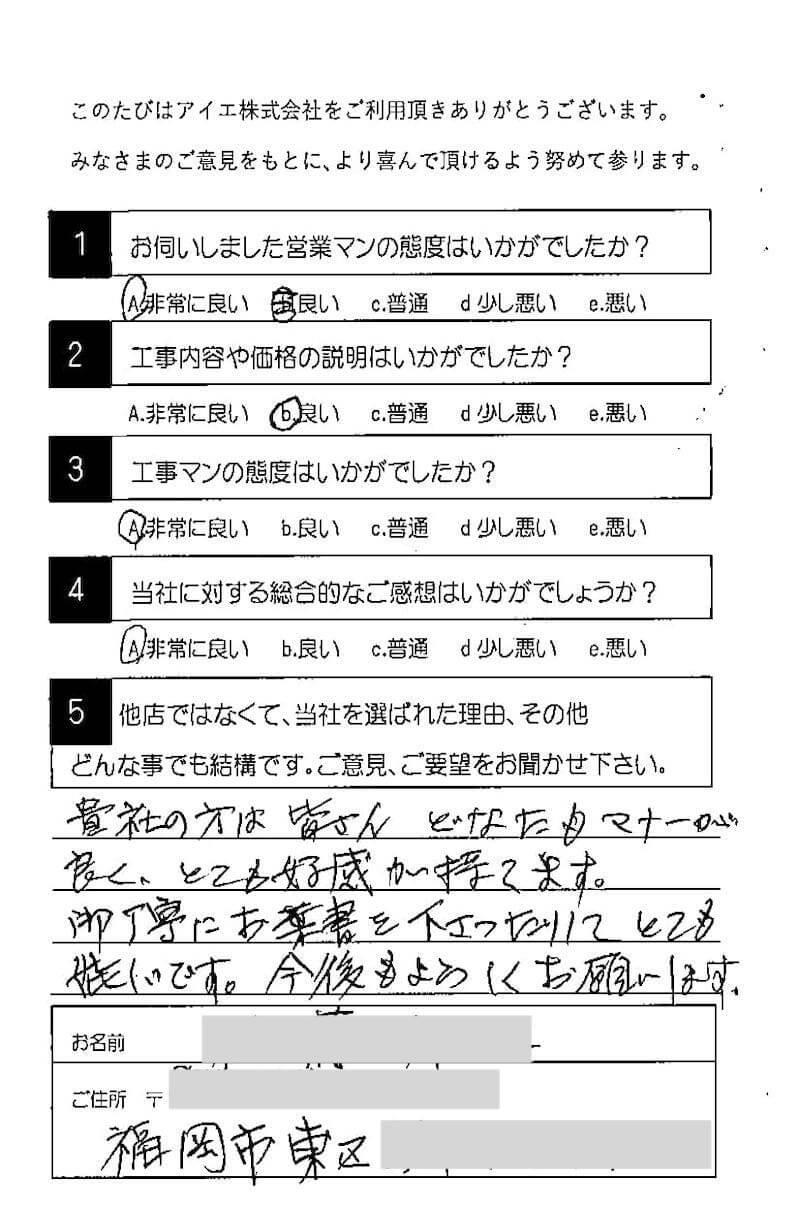 このたびはアイエ株式会社をご利用頂きありがとうございます。
みなさまのご意見をもとに、より喜んで頂けるよう努めて参ります。
1 お伺いしました営業マンの態度はいかがでしたか？
A.非常に良い 良い c.普通 d 少し悪い e.悪い
2 工事内容や価格の説明はいかがでしたか？
A.非常に良い b.良い c.普通 d 少し悪い e.悪い
3 工事マンの態度はいかがでしたか？
A.非常に良い b.良い c.普通 d 少し悪い e.悪い
4 当社に対する総合的なご感想はいかがでしょうか？
A.非常に良い b.良い c.普通 d 少し悪い e.悪い
5 他店ではなくて、当社を選ばれた理由、その他
どんな事でも結構です。ご意見、ご要望をお聞かせ下さい。
貴社の方は 皆さん どなたもマナーが
良く、とても好感が持てます。
御丁寧にお葉書を下さったりして とても
嬉しいです。今後もよろしくお願いします。
お名前
ご住所 〒
福岡市東区